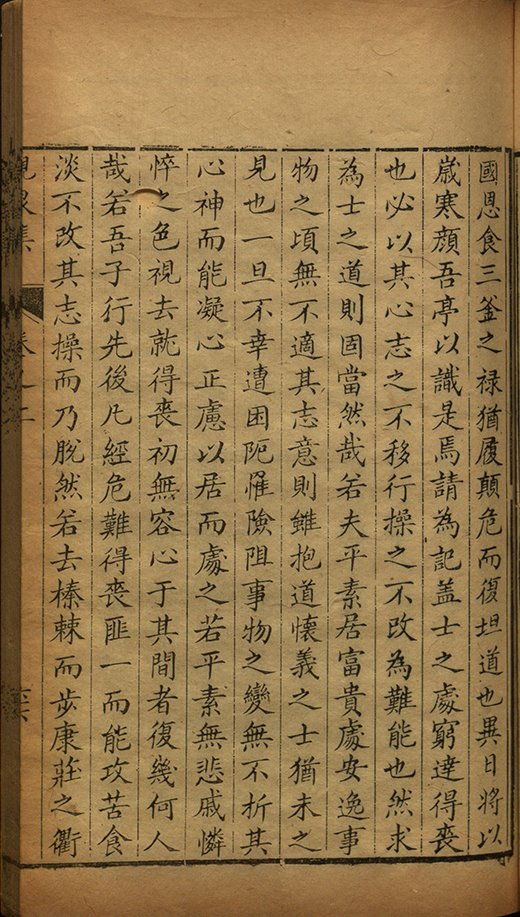 國恩食三釜之禄猶履顛危而復坦道也異日將以
歳寒顔吾亭以識是焉請為記盖士之處窮達得喪
也必以其心志之不移行操之不改為難能也然求
為士之道則固當然哉若夫平素居富貴處安逸事
物之頃無不適其志意則雖抱道懷義之士猶未之
見也一旦不幸遭困阨罹險阻事物之變無不折其
心神而能凝心正慮以居而處之若平素無悲戚憐
悴之色視去就得喪初無容心于其間者復幾何人
哉若吾子行先後凢經危難得喪匪一而能攻苦食
淡不改其志操而乃脫然若去榛棘而步康莊之衢